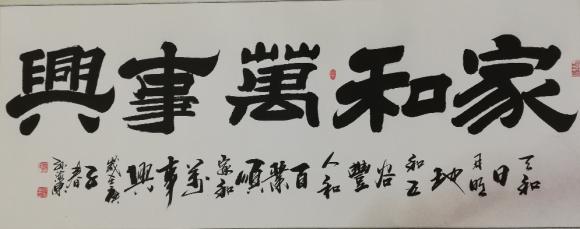 家和萬事興
天和日月明地和五谷豐人和百業順家和萬事興歲在庚子春